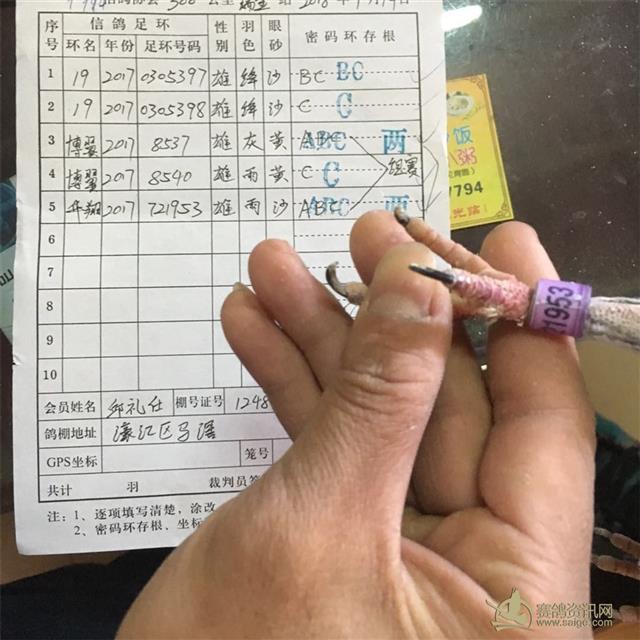 序号 信鸽足环 性别 羽色 眼砂 密码环存根
环名 年份 足环号码
1 19 2017 0305397 雄 绛 沙 BC BC
2 19 2017 0305398 雄 绛 沙 C C
3 博翼 2017 8537 雄 灰 黄 ABC ABC 两
4 博翼 2017 8540 雄 雨 黄 C C 组赛
5 华翔 2017 721953 雄 雨 沙 ABC ABC 两
6
7
8
9
10
会员姓名 邱礼仕 棚号证号 1248
鸽棚地址 濠江区马滘
GPS坐标 笼号
共计 羽 裁判员签
注：1、逐项填写清楚，涂改
2、密码环存根、坐标
饭
粥
7794
1953
赛鸽资讯网
www.saige.com